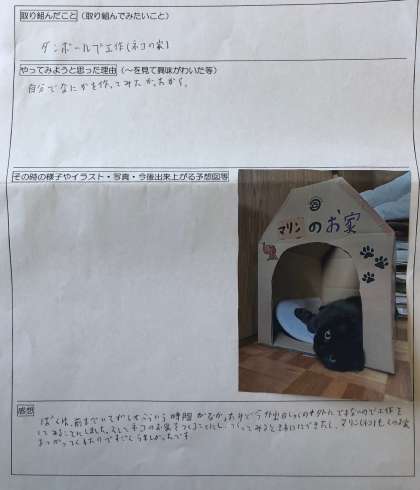 取り組んだこと（取り組んでみたいこと）
ダンボールで工作(ネコの家)
やってみようと思った理由（〜を見て興味がわいた等）
自分でなにかを作ってみたかったから。
その時の様子やイラスト・写真・今後出来上がる予想図等
マリン のお家
感想
ぼくは、前までいそがしくてこういう時間がなかったけど今は
してみることにしました。そしてネコのお家をつくることにし、つくってみると
マリン(ネコ)もこのお家
つかってくれたのですごくうれしかったです